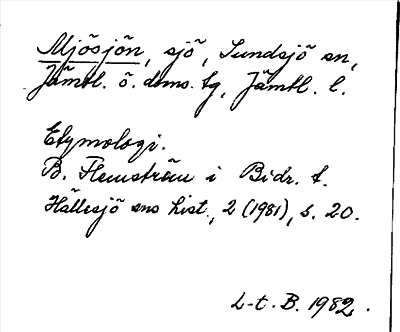 Mjösjön, sjö, Sundsjö sn,
Jämtl. ö. doms. tg, Jämtl. l.
Etymologi.
B. Flemström i Bidr. t.
Hällesjö sns hist., 2 (1981), s. 20.
L-t. B. 1982.